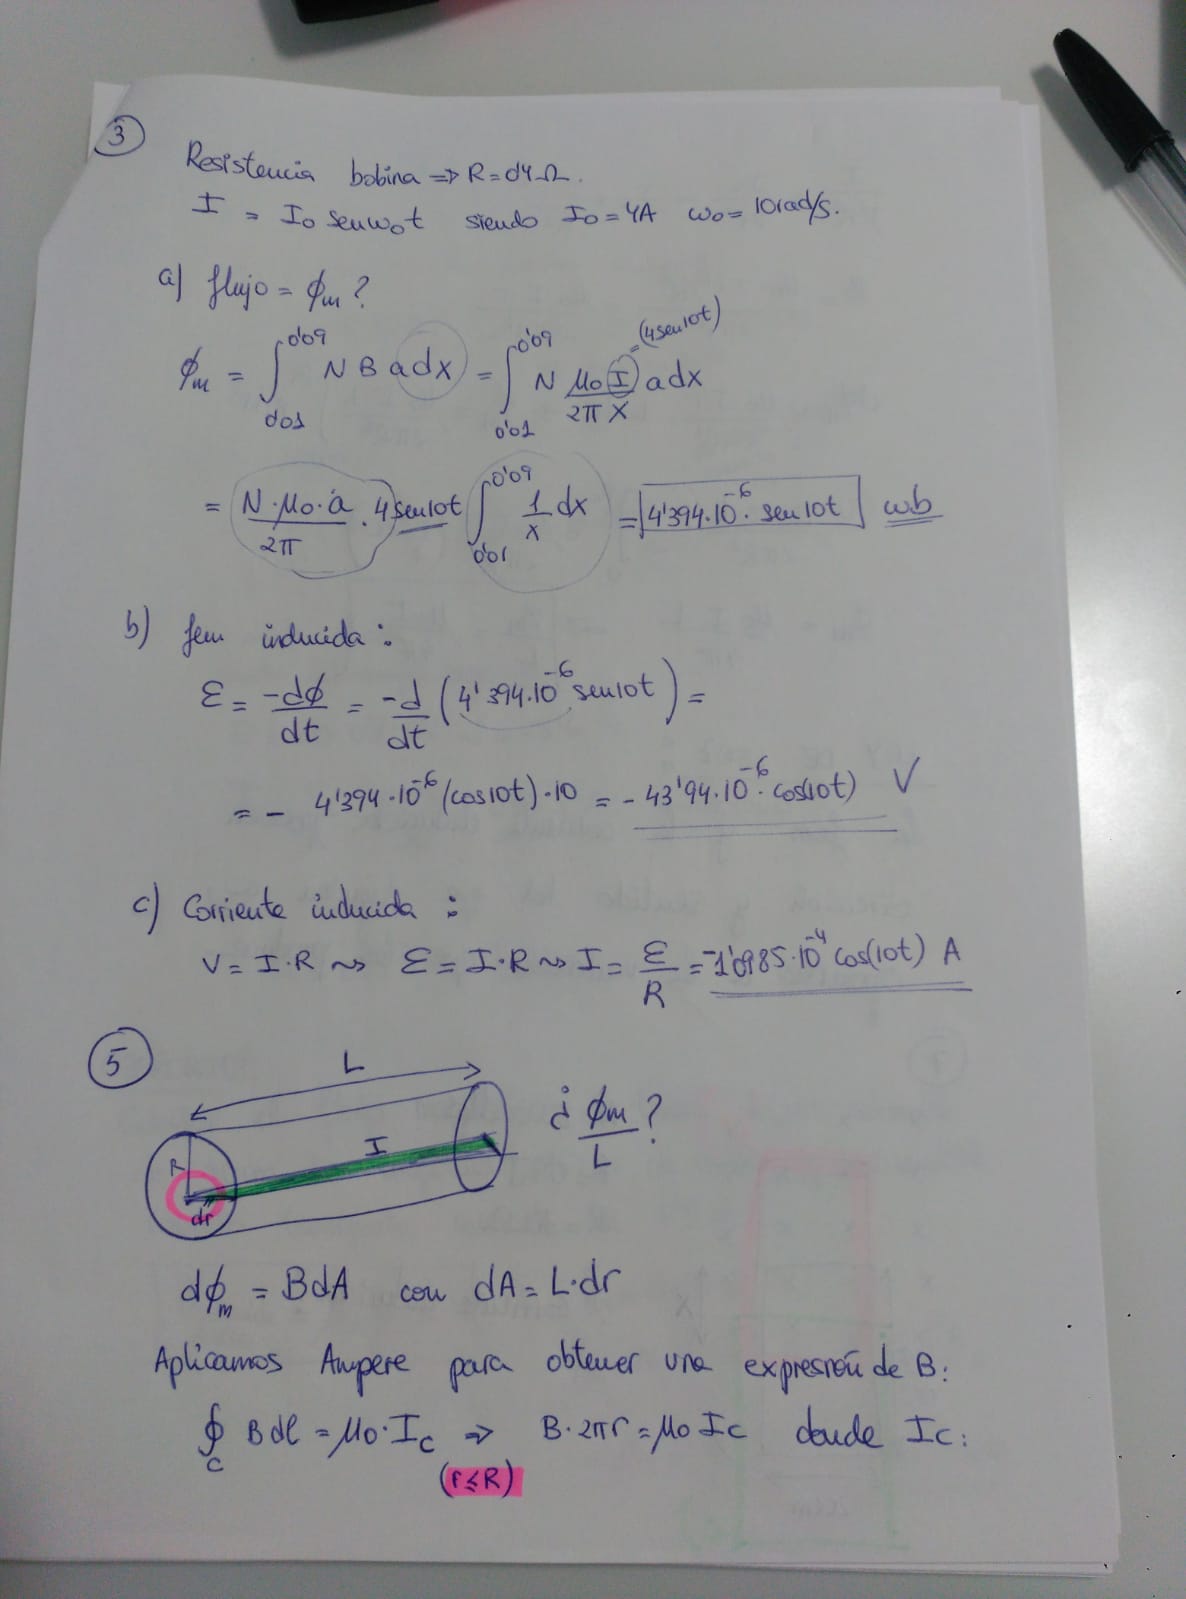 3
Resistencia bobina => R=0'4Ω.
I = I₀ senω₀t siendo I₀=4A ω₀=10rad/s.
a) flujo = ϕm?
ϕm = ∫_{0'01}^{0'09} N B a dx = ∫_{0'01}^{0'09} N μ₀ I / 2π x a dx =(4sen10t)
= N·μ₀·a / 2π · 4sen10t ∫_{0'01}^{0'09} 1/x dx = 4'394·10⁻⁶· sen10t wb
b) fem inducida:
ε = -dϕ/dt = -d/dt (4'394·10⁻⁶ sen10t) =
= - 4'394·10⁻⁶ (cos10t)·10 = - 43'94·10⁻⁶· cos(10t) V
c) Corriente inducida :
V= I·R ~> ε = I·R ~> I = ε/R = -1'0985·10⁻⁴ cos(10t) A
5
L
I
R
dr
¿ ϕm/L ?
dϕm = BdA con dA = L·dr
Aplicamos Ampere para obtener una expresión de B:
∮c B dl = μ₀·Ic => B·2πr = μ₀ Ic donde Ic:
(r≤R)